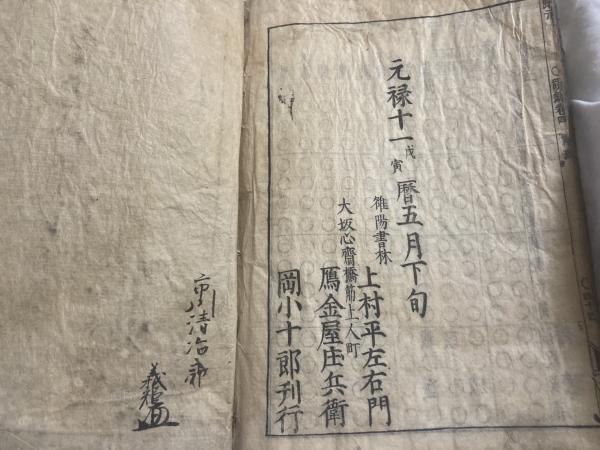 元禄十一戊寅暦五月下旬
雒陽書林 上村平左右門
大坂心齋橋筋上人町
鴈金屋庄兵衛
岡小十郎刊行